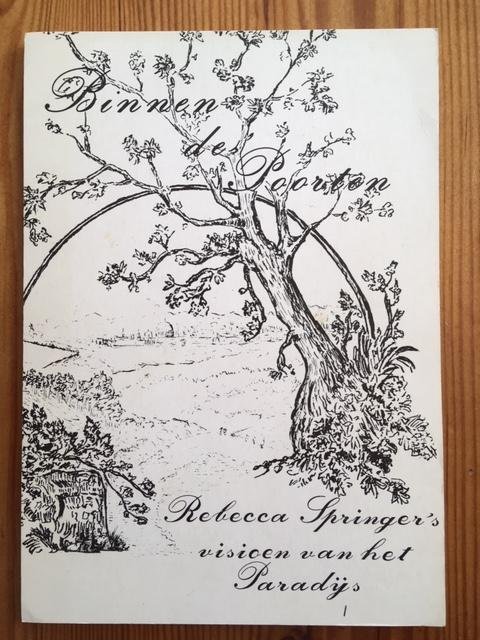 Binnen
de Poorten
Rebecca Springer's
visioen van het
Paradijs